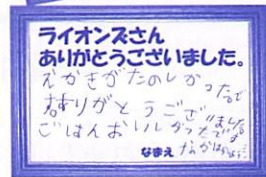 ライオンズさん
ありがとうございました。
えかきがたのしかったです
ありがとうございました
ごはんおいしかったです
なまえ なかは